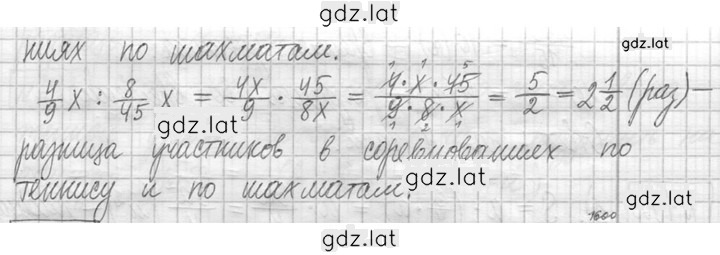 gdz.lat
ниях по шахматам.
gdz.lat
4/9 x : 8/45 x = 4x/9 · 45/8x = 4 · x · 45/9 · 8 · x = 5/2 = 2 1/2 (раз) —
gdz.lat
разница участников в соревнованиях по
теннису и по шахматам.
gdz.lat
gdz.lat
gdz.lat